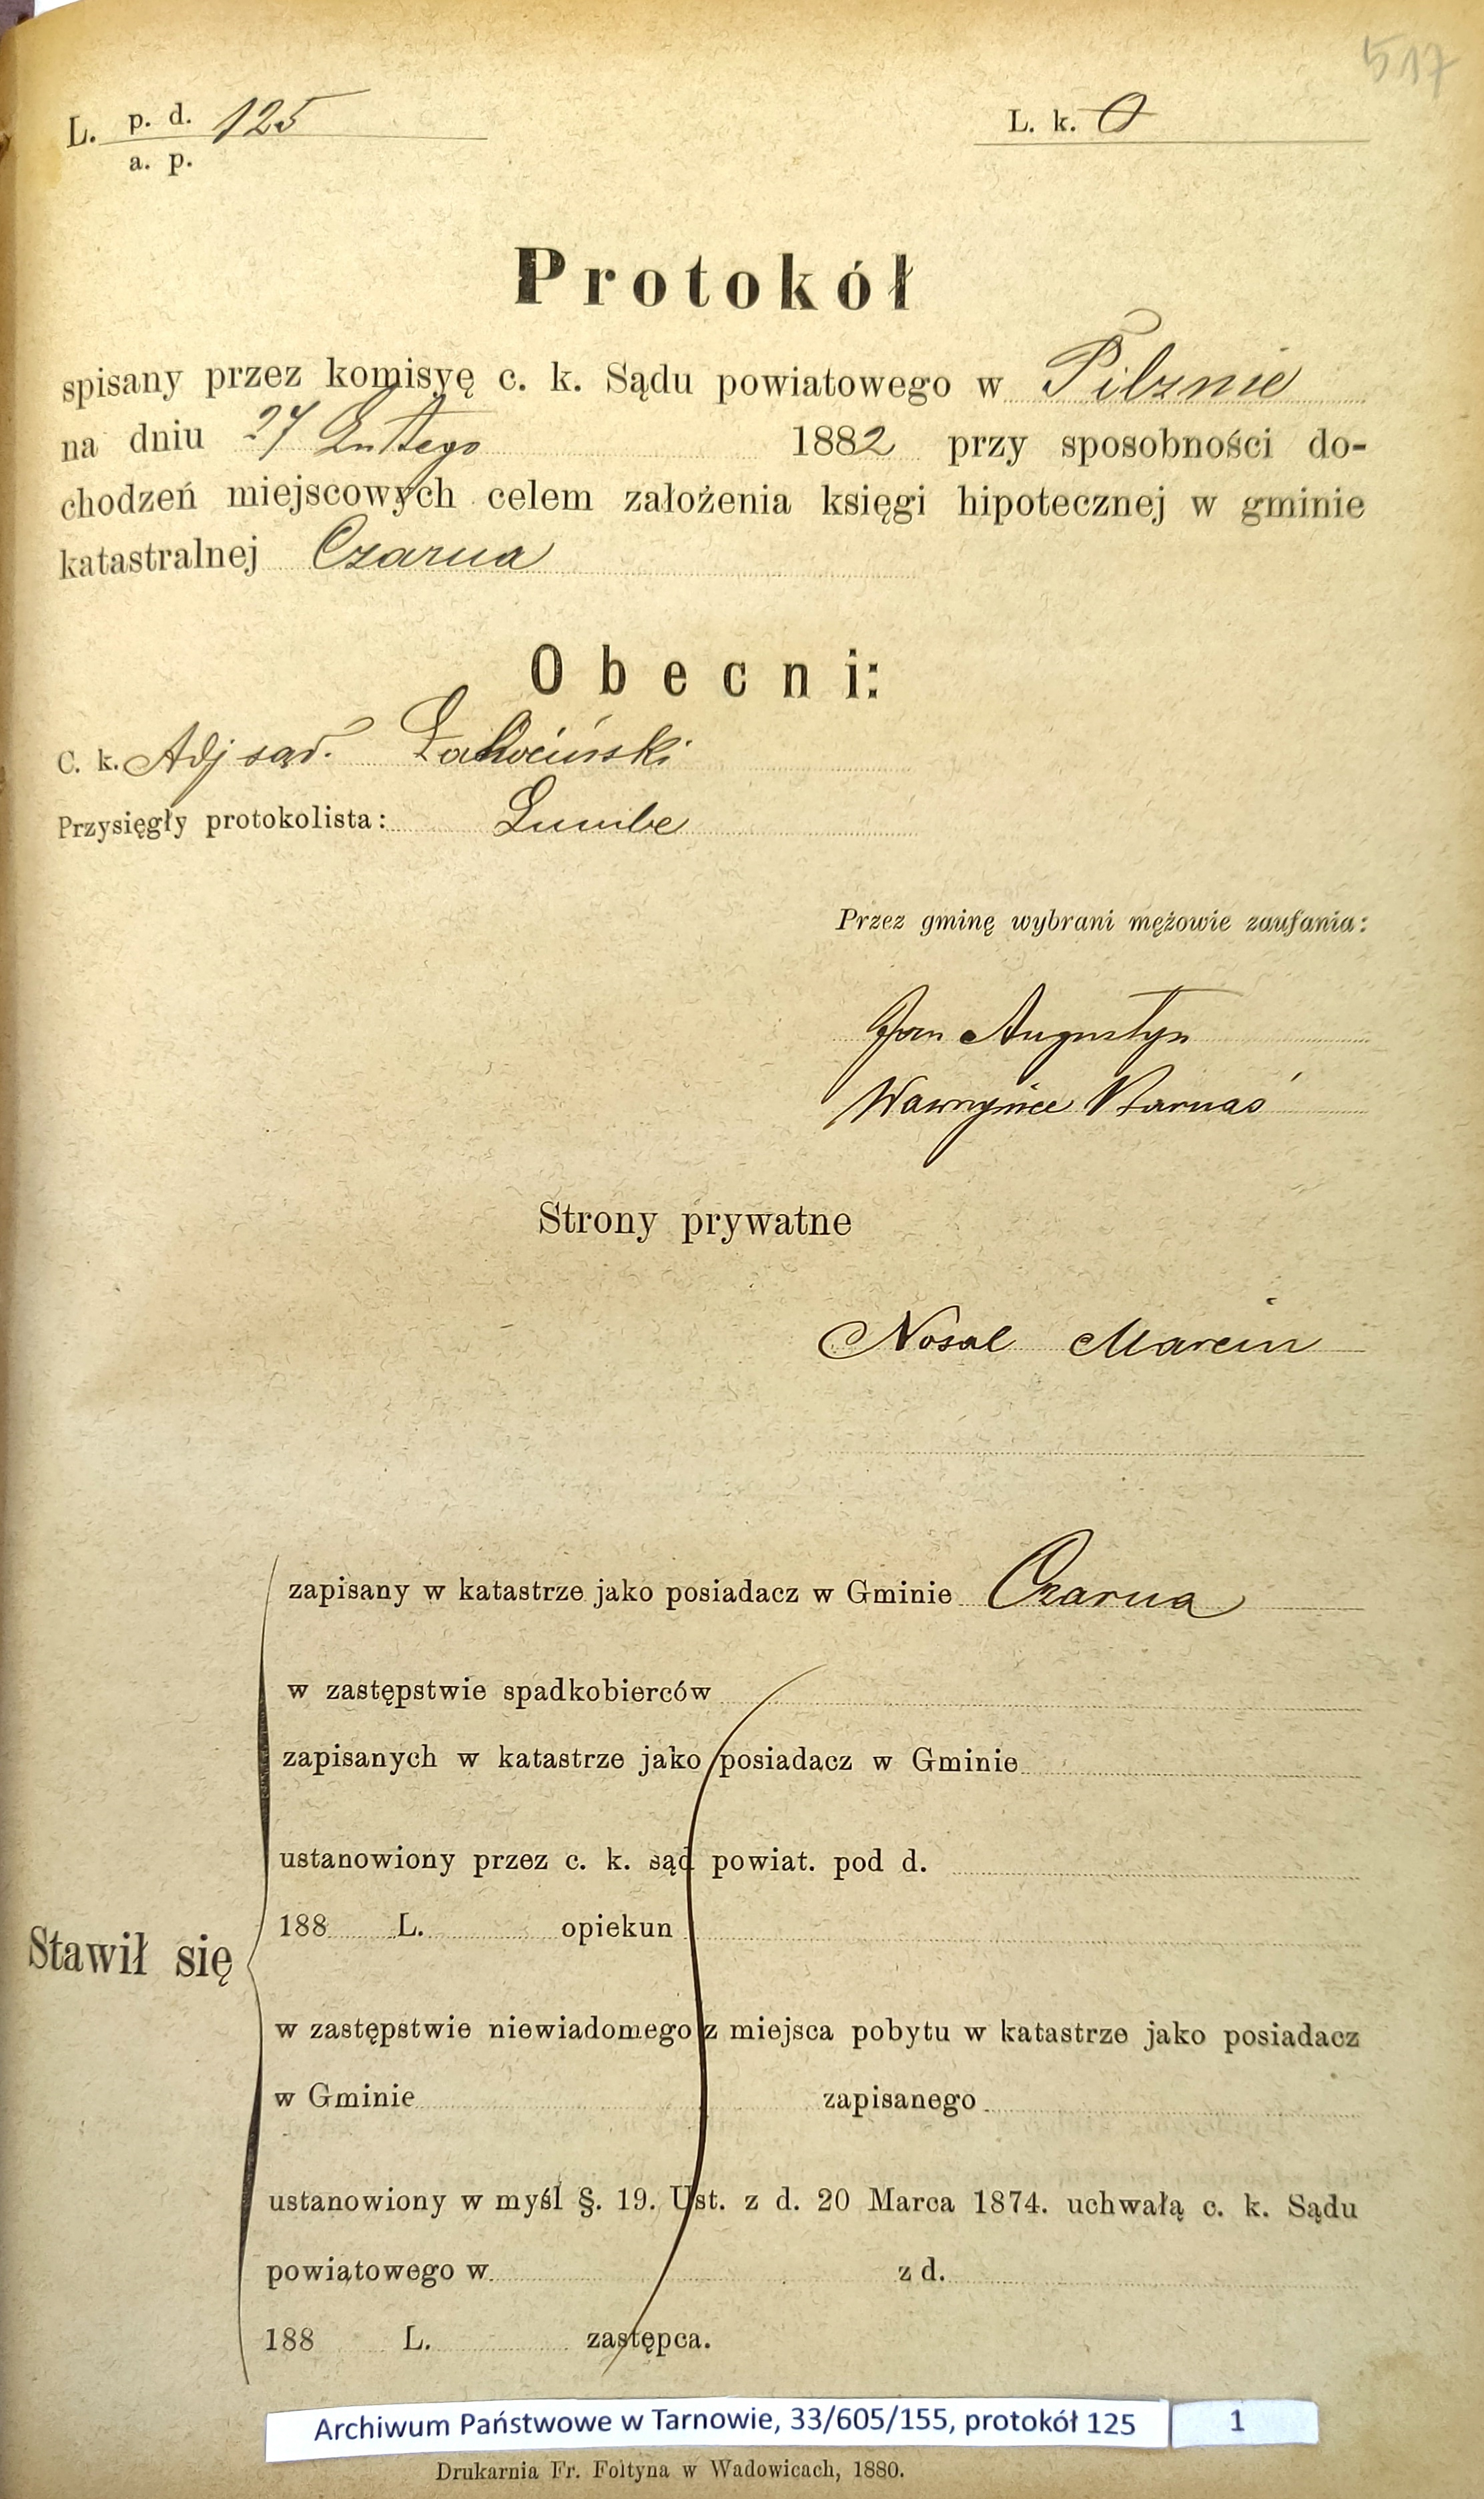 517
L. p. d. 125
a. p.
L. k. 0
Protokół
spisany przez komisyę c. k. Sądu powiatowego w Pilznie
na dniu 27 Lutego 1882 przy sposobności do-
chodzeń miejscowych celem założenia księgi hipotecznej w gminie
katastralnej Czarna
Obecni:
C. k. Adj sąd.
Przysięgły protokolista:
Przez gminę wybrani mężowie zaufania:
Jan Augustyn
Wawrzyniec
Strony prywatne
Nosal Marcin
zapisany w katastrze jako posiadacz w Gminie Czarna
w zastępstwie spadkobierców
zapisanych w katastrze jako posiadacz w Gminie
ustanowiony przez c. k. sąd powiat. pod d.
188 L. opiekun
Stawił się
w zastępstwie niewiadomego z miejsca pobytu w katastrze jako posiadacz
w Gminie zapisanego
ustanowiony w myśl §. 19. Ust. z d. 20 Marca 1874. uchwałą c. k. Sądu
powiatowego w z d.
188 L. zastępca.
Archiwum Państwowe w Tarnowie, 33/605/155, protokół 125 1
Drukarnia Fr. Foltyna w Wadowicach, 1880.